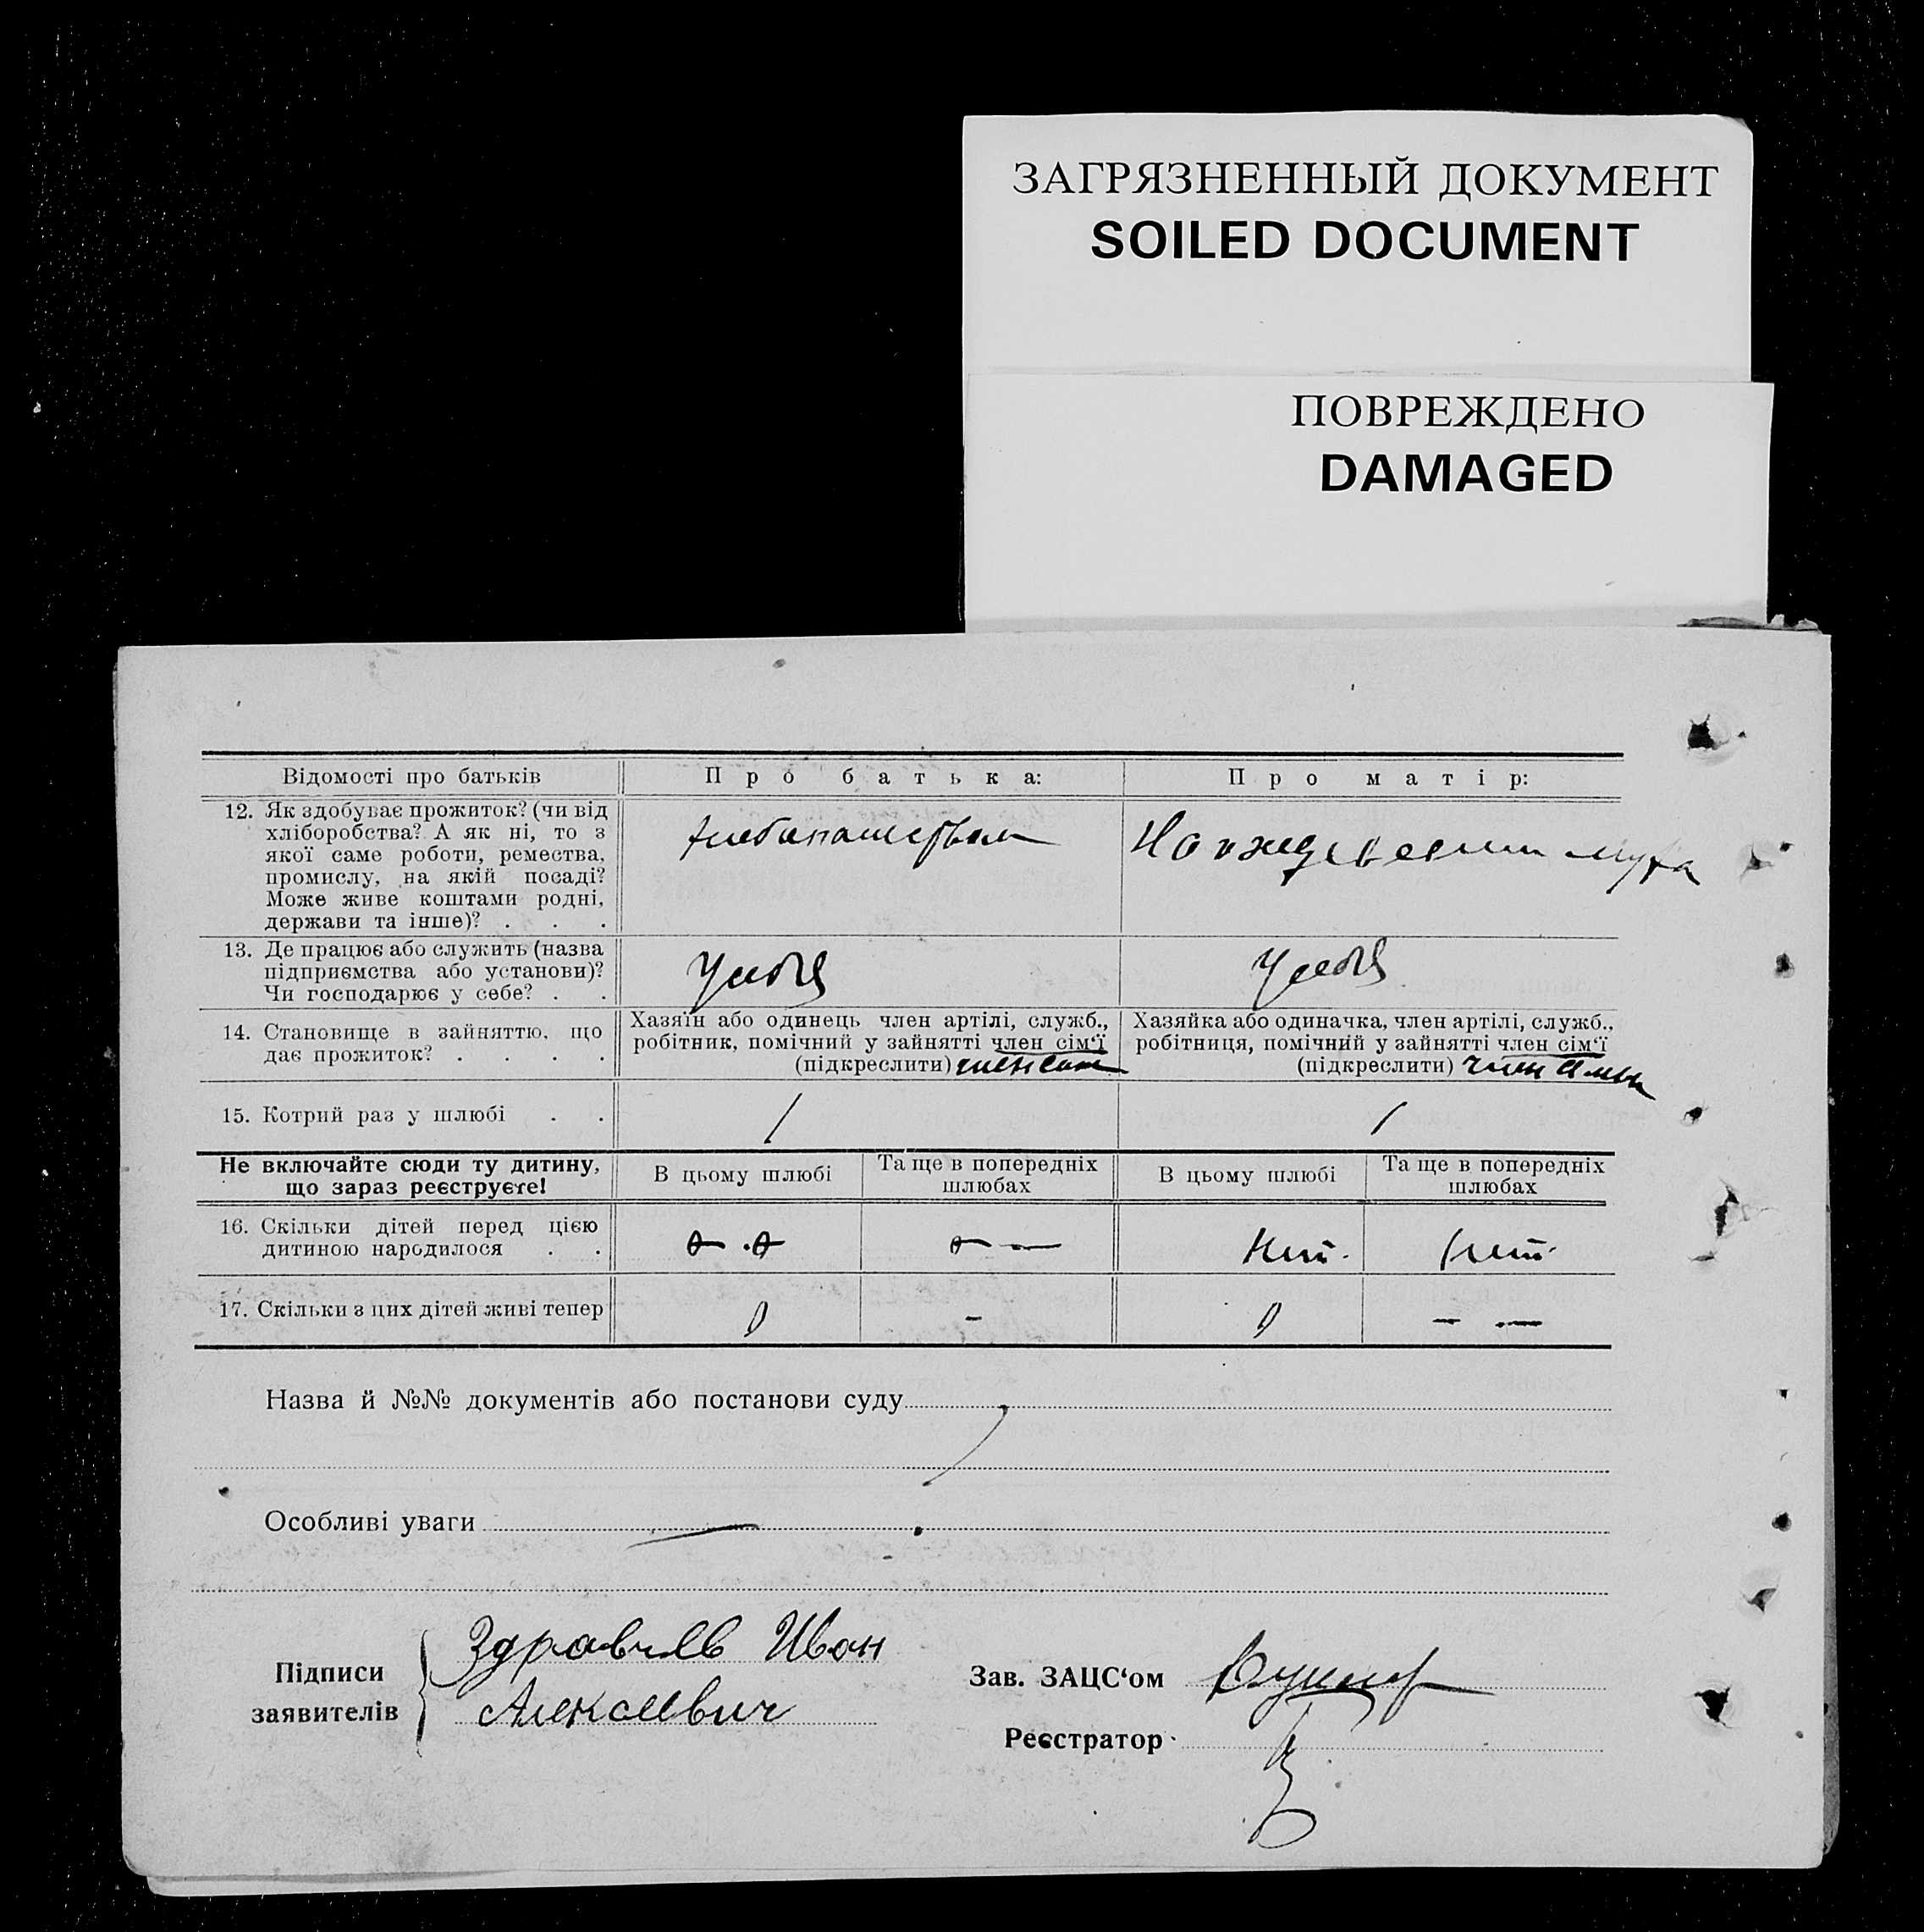 ЗАГРЯЗНЕННЫЙ ДОКУМЕНТ
SOILED DOCUMENT
ПОВРЕЖДЕНО
DAMAGED
Відомості про батьків
Про батька:
Про матір:
12. Як здобуває прожиток? (чи від
хліборобства? А як ні, то з
якої саме роботи, ремества,
промислу, на якій посаді?
Може живе коштами родні,
держави та інше)? . . .
хлебопашеством
На иждевении мужа
13. Де працює або служить (назва
підприємства або установи)?
Чи господарює у себе? . .
У себя
У себя
14. Становище в зайняттю, що
дає прожиток? . . . .
Хазяїн або одинець член артілі, служб.,
робітник, помічний у зайнятті член сім'ї
(підкреслити) член семи
Хазяйка або одиначка, член артілі, служб.,
робітниця, помічний у зайнятті член сім'ї
(підкреслити) член семьи
15. Котрий раз у шлюбі . .
1
1
Не включайте сюди ту дитину,
що зараз реєструєте!
В цьому шлюбі
Та ще в попередніх
шлюбах
В цьому шлюбі
Та ще в попередніх
шлюбах
16. Скільки дітей перед цією
дитиною народилося . .
нет.
нет.
17. Скільки з цих дітей живі тепер
0
-
0
- -
Назва й №№ документів або постанови суду
Особливі уваги
Підписи
заявителів
Здравчев Иван
Алексеевич
Зав. ЗАЦС'ом
Реєстратор